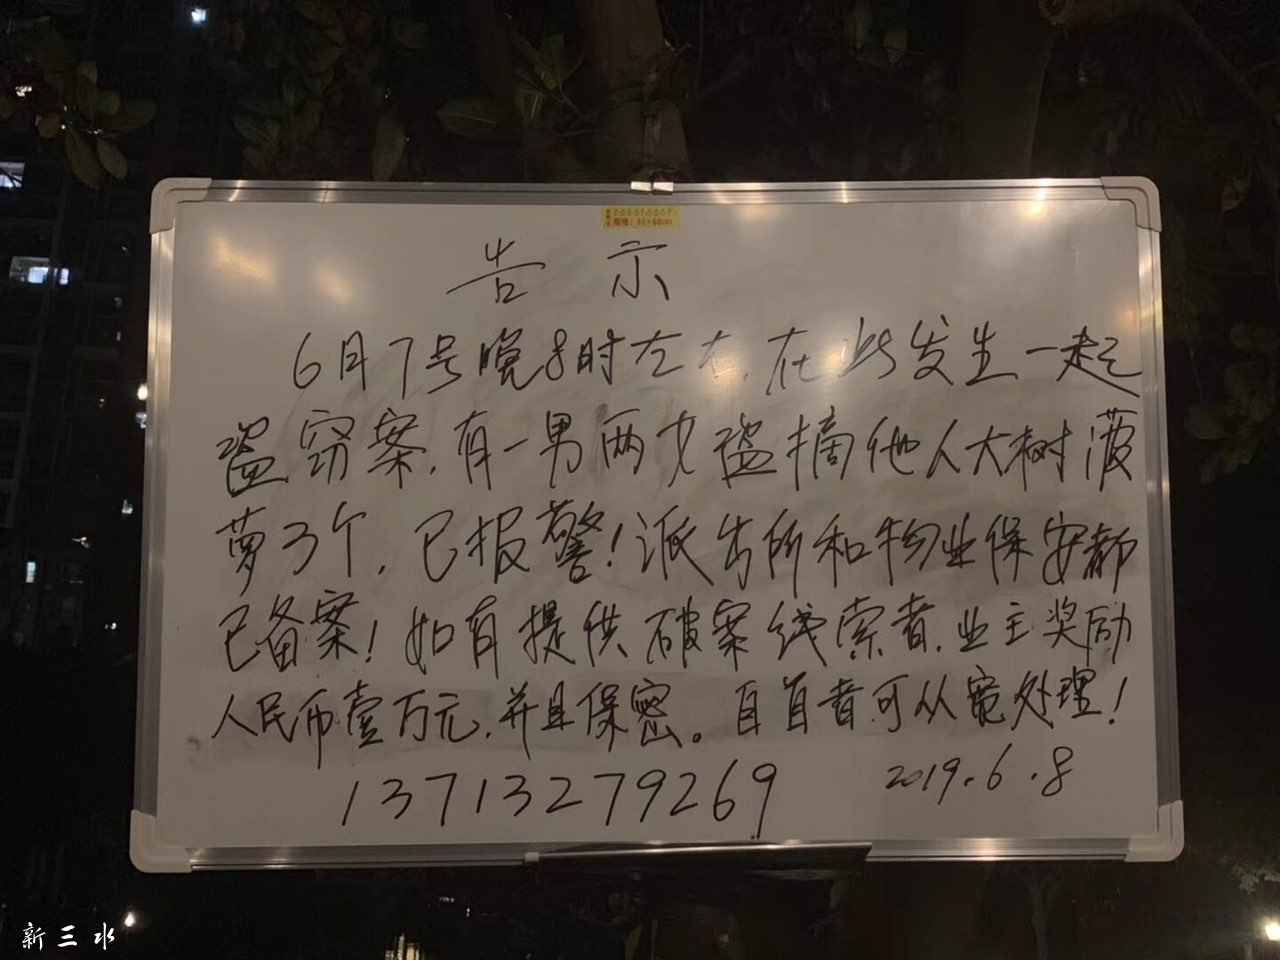 告示
6月7号晚8时左右,在此发生一起
盗窃案,有一男两女盗摘他人大树菠
萝3个,已报警!派出所和物业保安都
已备案!如有提供破案线索者,业主奖励
人民币壹万元,并且保密。自首者可从宽处理!
13713279269 2019.6.8
新三水